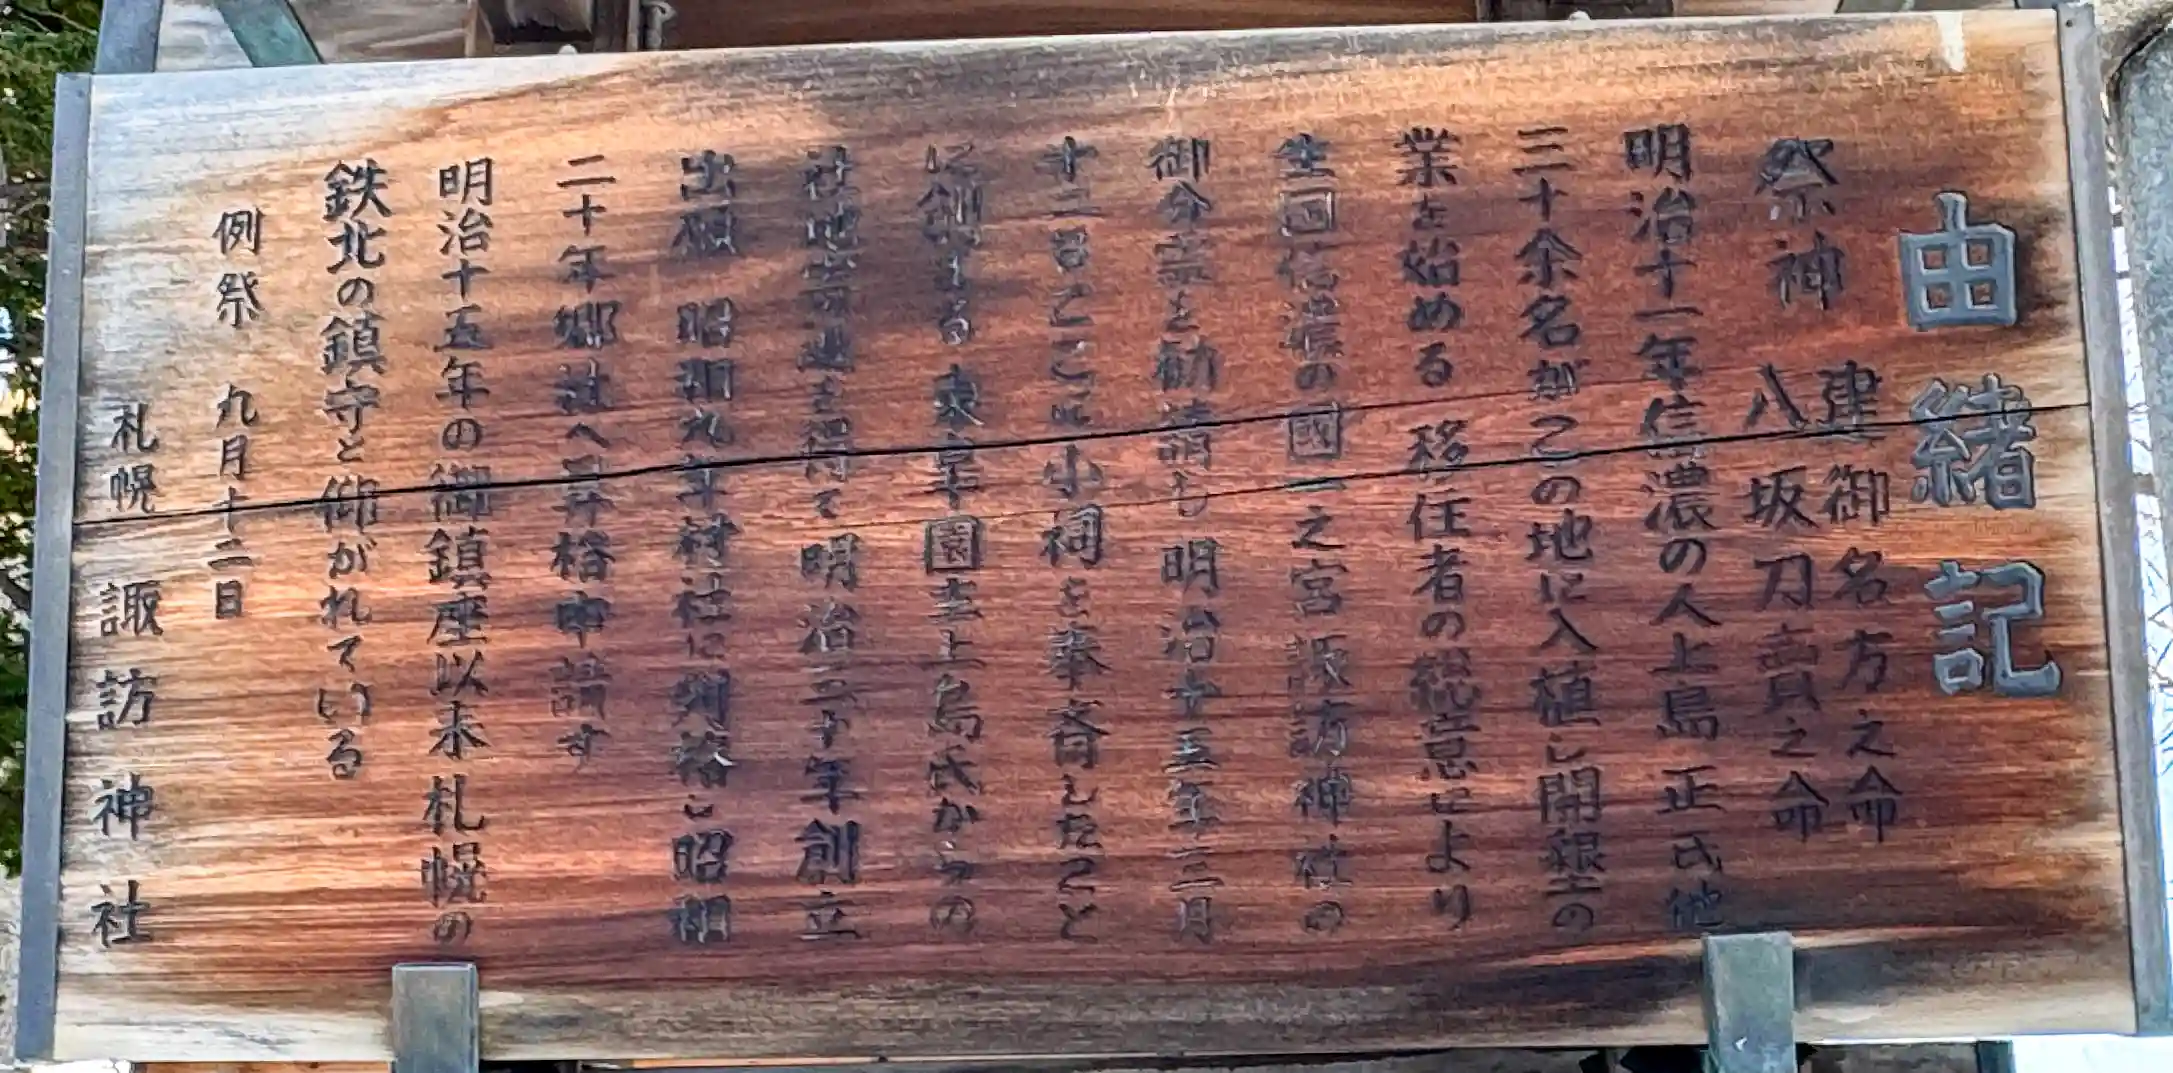 由緒記
祭神 建御名方之命
八坂刀賣之命
明治十一年信濃の人上島 正氏他
三十余名がこの地に入植し開墾の
業を始める 移住者の総意により
生国信濃の國一之宮諏訪神社の
御分霊を勧請し 明治十五年三月
十二日ここに小祠を奉斎したこと
に創まる 東皐園主上島氏からの
社地寄進を得て 明治三十年創立
出願 昭和九年村社に列格し昭和
二十年郷社へ昇格申請す
明治十五年の御鎮座以来 札幌の
鉄北の鎮守と仰がれている
例祭 九月十二日
札幌 諏訪神社